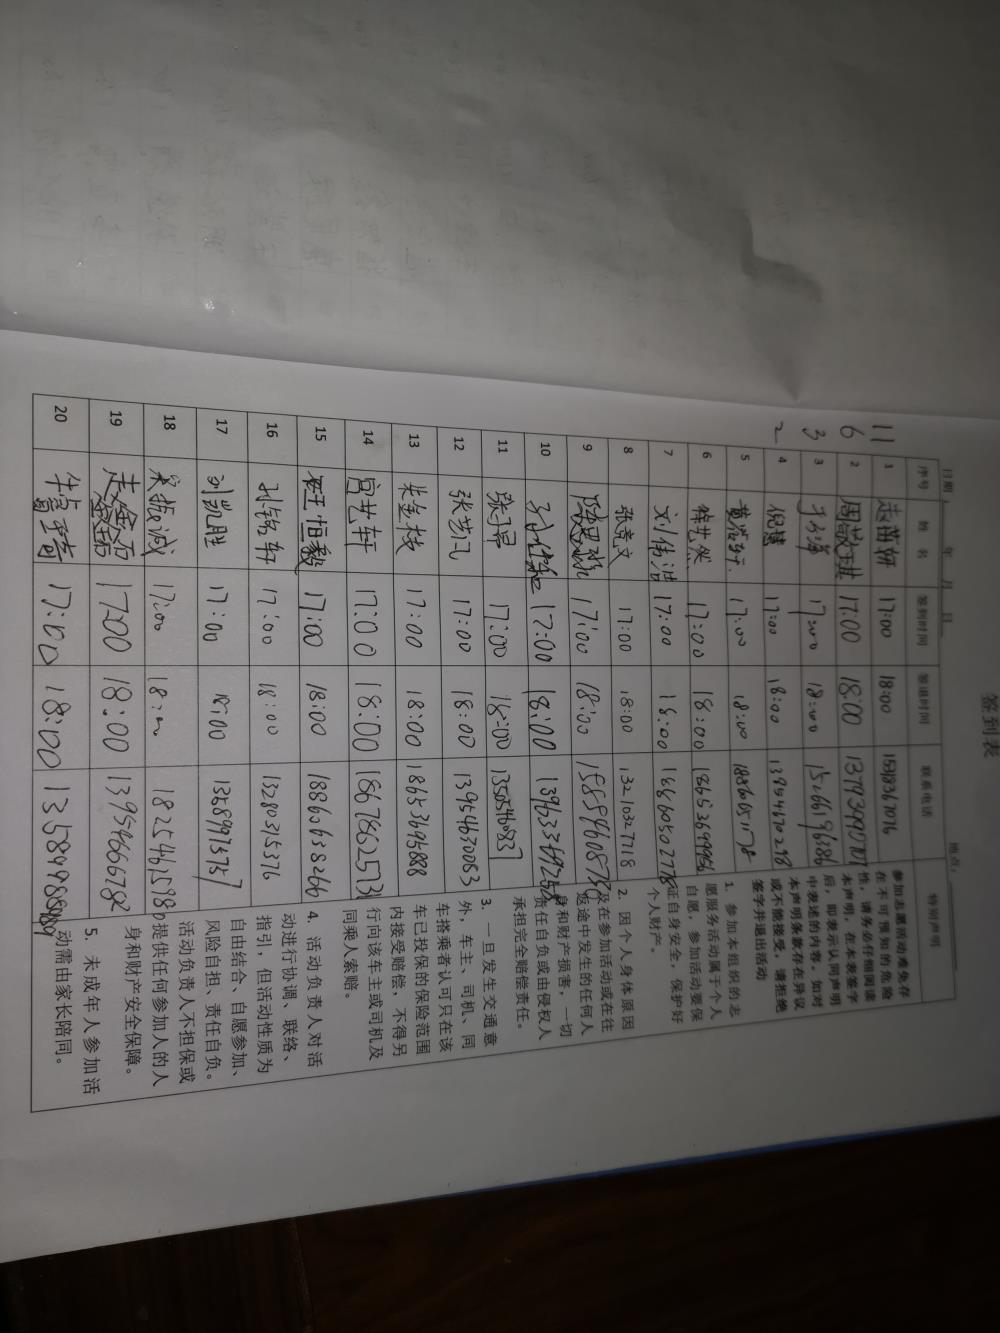 签到表
日期 年 月 日 地点：
序号 姓 名 签到时间 签退时间 联系电话 特别声明
11
6
3
2
1 赵苗妍 17:00 18:00 15318367076
2 周敬琪 17:00 18:00
3 于海 17:00 18:00 15266196386
4 倪慧 17:00 18:00 13954670298
5 17:00 18:00 18866051178
6 徐艺然 17:00 18:00
7 刘伟洁 17:00 18:00 18660502778
8 张竞文 17:00 18:00 13210327718
9 17:00 18:00
10 17:00 18:00
11 17:00 18:00 13505460837
12 张艺凡 17:00 18:00 13954630083
13 朱金枝 17:00 18:00 18653695888
14 宫艺轩 17:00 18:00
15 17:00 18:00 18866638266
16 孙铭轩 17:00 18:00 13280315376
17 刘凯胜 17:00 18:00 13589971537
18 17:00 18:00 18254615980
19 17:00 18:00 13954666782
20 17:00 18:00
参加志愿活动难免存
在不可预知的危险
性，请务必仔细阅读
本声明，在本表签字
后，即表示认同声明
中表述的内容。如对
本声明条款存在异议
或不能接受，请拒绝
签字并退出活动
1. 参加本组织的志
愿服务活动属于个人
自愿，参加活动要保
证自身安全，保护好
个人财产。
2. 因个人身体原因
及在参加活动或在往
返途中发生的任何人
身和财产损害，一切
责任自负或由侵权人
承担完全赔偿责任。
3. 一旦发生交通意
外，车主、司机、同
车搭乘者认可只在该
车已投保的保险范围
内接受赔偿，不得另
行向该车主或司机及
同乘人索赔。
4. 活动负责人对活
动进行协调、联络、
指引，但活动性质为
自由结合、自愿参加、
风险自担、责任自负。
活动负责人不担保或
提供任何参加人的人
身和财产安全保障。
5. 未成年人参加活
动需由家长陪同。